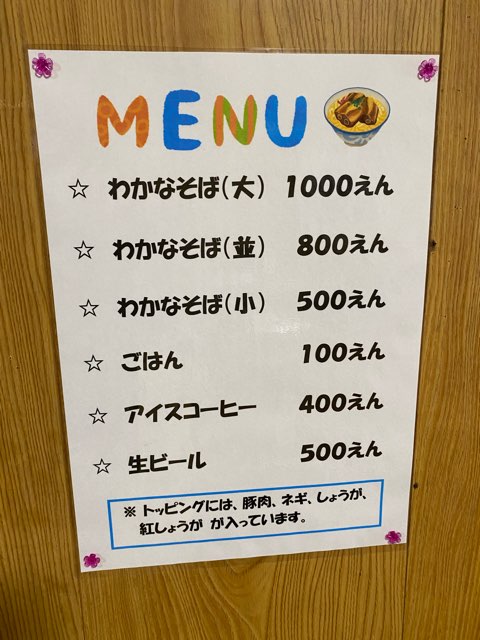 MENU
☆ わかなそば(大) 1000えん
☆ わかなそば(並) 800えん
☆ わかなそば(小) 500えん
☆ ごはん 100えん
☆ アイスコーヒー 400えん
☆ 生ビール 500えん
※ トッピングには、豚肉、ネギ、しょうが、
紅しょうが が入っています。